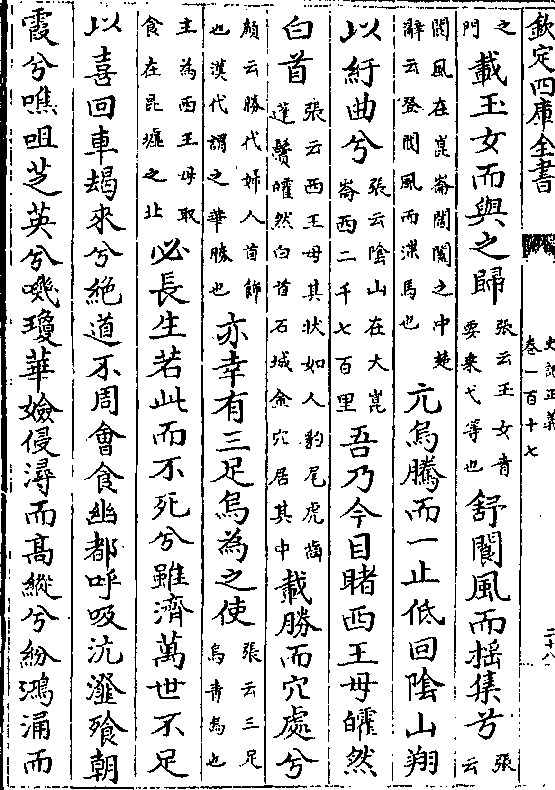 欽定四庫全書
史記正義
卷一百十七
二十八
之
門
載玉女而與之歸
張云玉女青
要乗弋等也
舒閬風而揺集兮
張
云
閬風在崑崙閶闔之中楚
辭云登閬風而緤馬也
亢烏騰而一止低回隂山翔
以紆曲兮
張云隂山在大崑
崙西二千七百里
吾乃今目睹西王母皬然
白首
張云西王母其狀如人豹尾虎齒
蓬鬢皬然白首石城金穴居其中
載勝而穴處兮
顔云勝代婦人首飾
也漢代謂之華勝也
亦幸有三足烏為之使
張云三足
烏青鳥也
主為西王母取
食在昆墟之北
必長生若此而不死兮雖濟萬世不足
以喜回車朅來兮絶道不周會食幽都呼吸沆瀣飱朝
霞兮噍咀芝英兮嘰瓊華嬐侵潯而髙縱兮紛鴻涌而